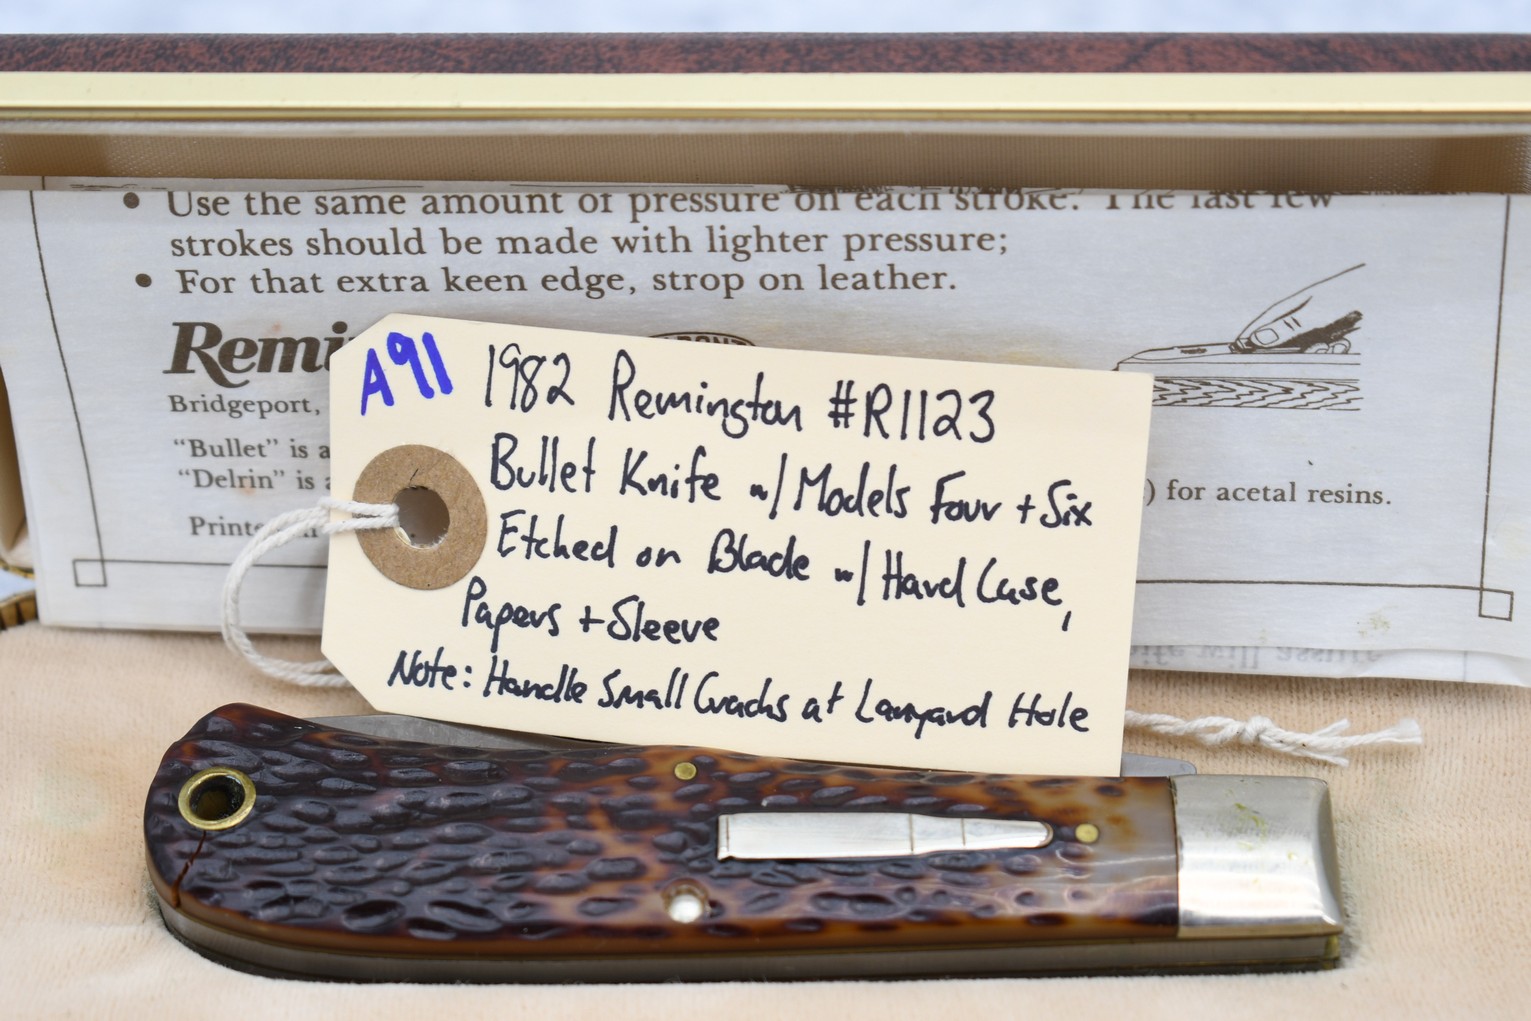 Use the same amount of pressure on each stroke. The last few
strokes should be made with lighter pressure;
For that extra keen edge, strop on leather.
Bridgeport,
"Bullet" is a
"Delrin" is
) for acetal resins.
A91
1982 Remington #R1123
Bullet Knife w/ Models Four + Six
Etched on Blade w/ Hard Case,
Papers + Sleeve
Note: Handle Small Cracks at Lanyard Hole